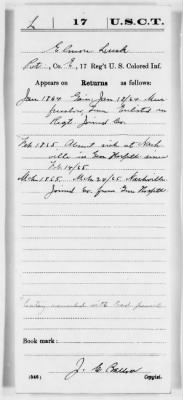 L 17 U.S.C.T.
Elmon Lusk
Pvt., Co. E, 17 Reg't U. S. Colored Inf.
Appears on Returns as follows:
Jan 1864 Gain Jan 12/64 Mur
freesboro, Tenn Enlisted in
Regt Joined Co.
Feb. 1865. Absent sick at Nash
ville in Gen Hospital since
Feb. 14/65.
Mch 1865. Mch 24/65 Nashville
Joined Co. from Gen Hospital
with red pencil
Book mark:
(546) J. C. Copyist.